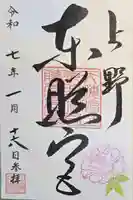 上野
東照宮
令和七年一月十八日参拝